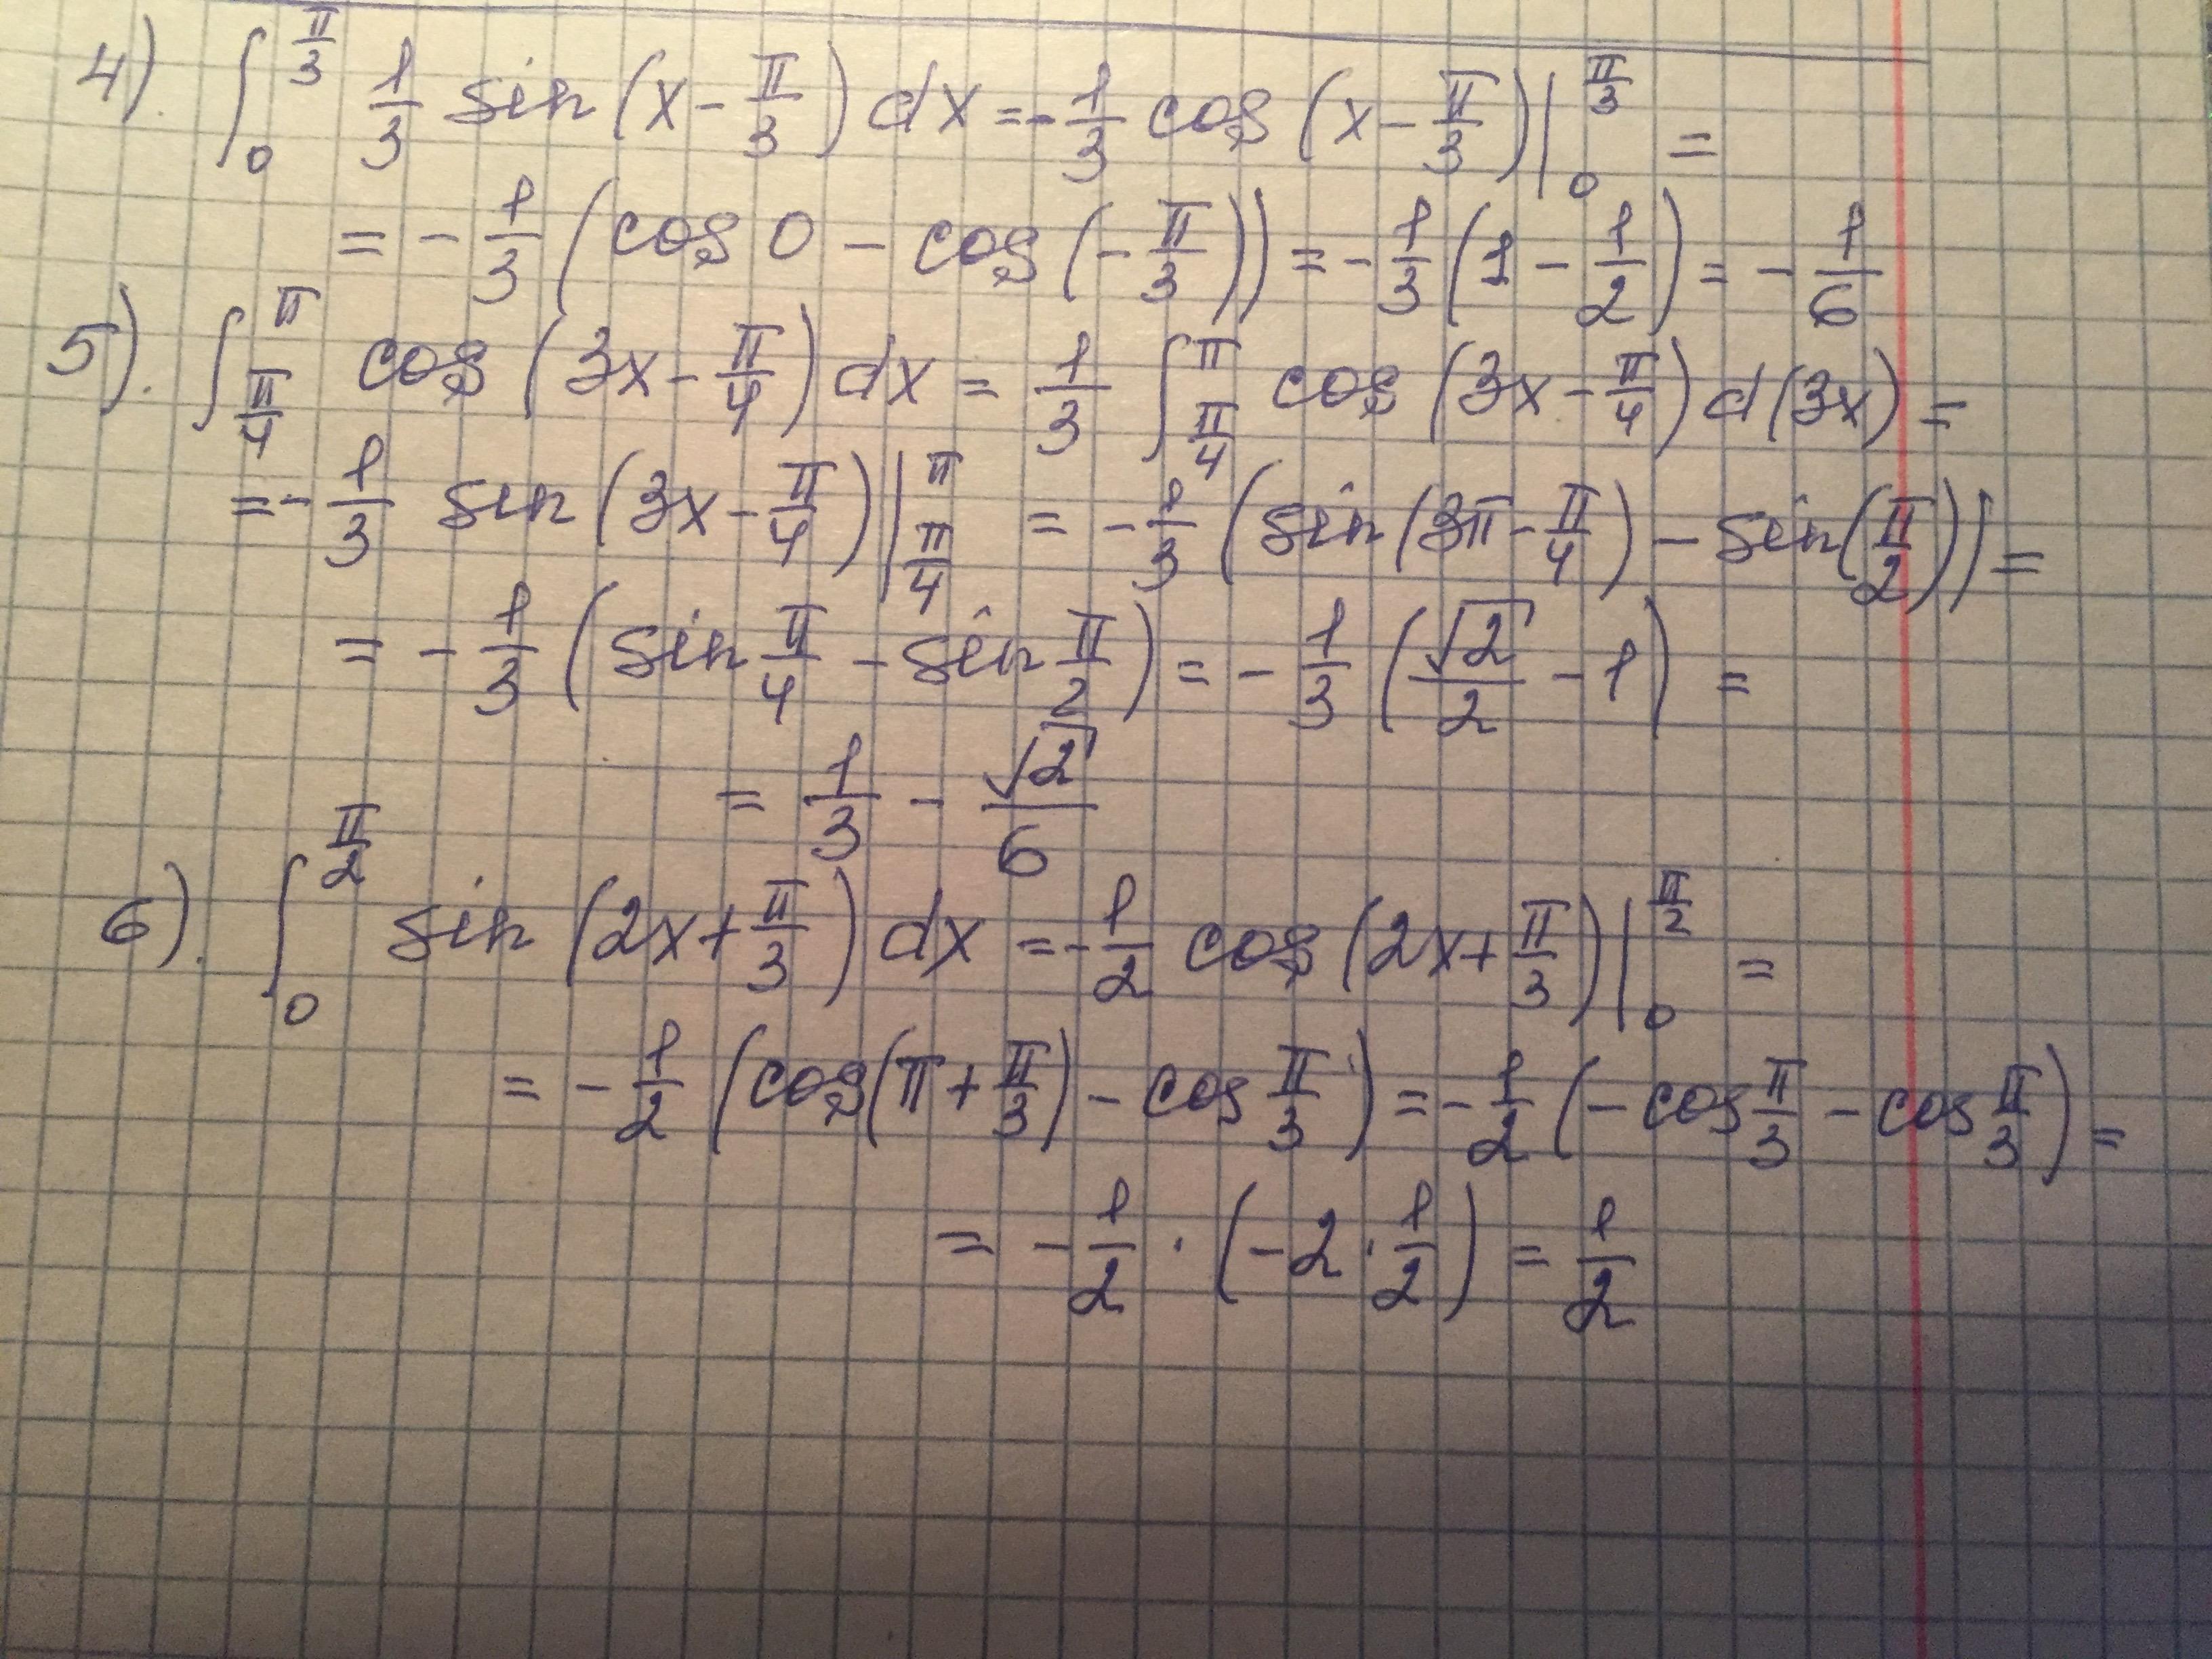 4). ∫₀^{π/3} 1/3 sin(x - π/3) dx = - 1/3 cos(x - π/3) |₀^{π/3} =
= - 1/3 (cos 0 - cos(- π/3)) = - 1/3 (1 - 1/2) = - 1/6
5). ∫_{π/4}^{π} cos(3x - π/4) dx = 1/3 ∫_{π/4}^{π} cos(3x - π/4) d(3x) =
= - 1/3 sin(3x - π/4) |_{π/4}^{π} = - 1/3 (sin(3π - π/4) - sin(π/2)) =
= - 1/3 (sin π/4 - sin π/2) = - 1/3 (√2/2 - 1) =
= 1/3 - √2/6
6). ∫₀^{π/2} sin(2x + π/3) dx = - 1/2 cos(2x + π/3) |₀^{π/2} =
= - 1/2 (cos(π + π/3) - cos π/3) = - 1/2 (- cos π/3 - cos π/3) =
= - 1/2 · (-2 · 1/2) = 1/2